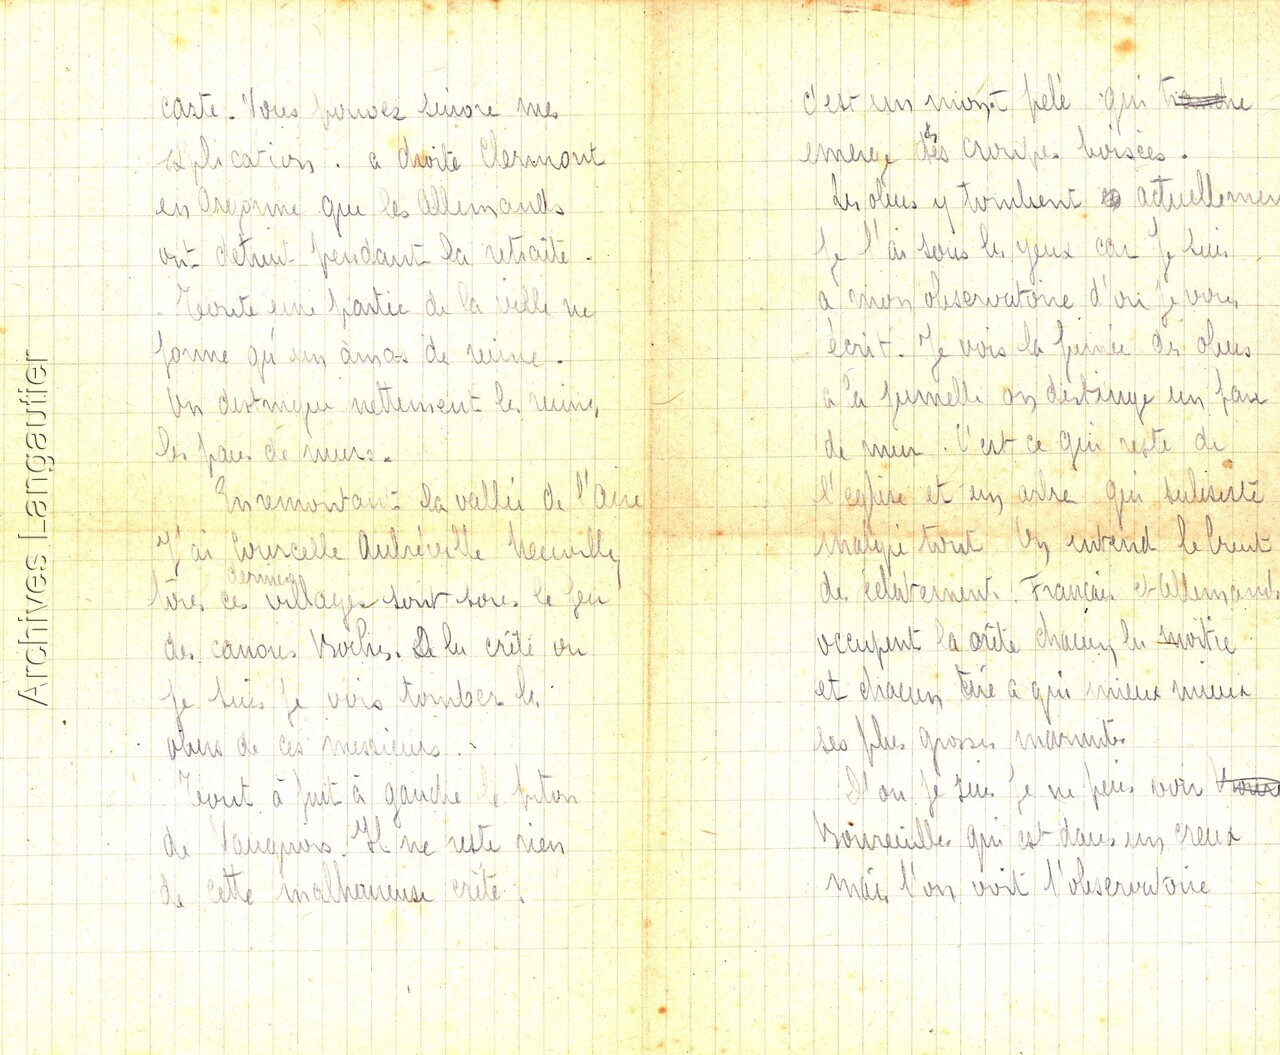 carte. Vous pouvez suivre mes
explications. a droite Clermont
en Argonne que les Allemands
ont detruit pendant la retraite.
Toute une partie de la ville ne
forme qu'un amas de ruine.
On distingue nettement les ruines
les pans de murs.
En remontant la vallée de l'Aire
J'ai Courcelle Aubréville Neuvilly
ces derniers villages sont sous le feu
des canons Boches. De la crête ou
je suis je vois tomber les
obus de ces messieurs.
Tout à fait à gauche le piton
de Vauquois. Il ne reste rien
de cette malheureuse crête.
c'est un mont pelé qui
emerge des croupes boisées.
Les obus y tombent actuellement
Je l'ai sous les yeux car je suis
a mon observatoire d'ou je vous
écrit. Je vois la fumée des obus
a la jumelle on distingue un pan
de mur. C'est ce qui reste de
l'eglise et un arbre qui subsiste
malgré tout On entend le bruit
des éclatements. Français et Allemands
occupent la crête chacun la moitie
et chacun tire a qui mieux mieux
ses plus grosses marmites
D'ou je suis je ne puis voir
Boureuilles qui est dans un creux
mais l'on voit l'observatoire
Archives Langautier